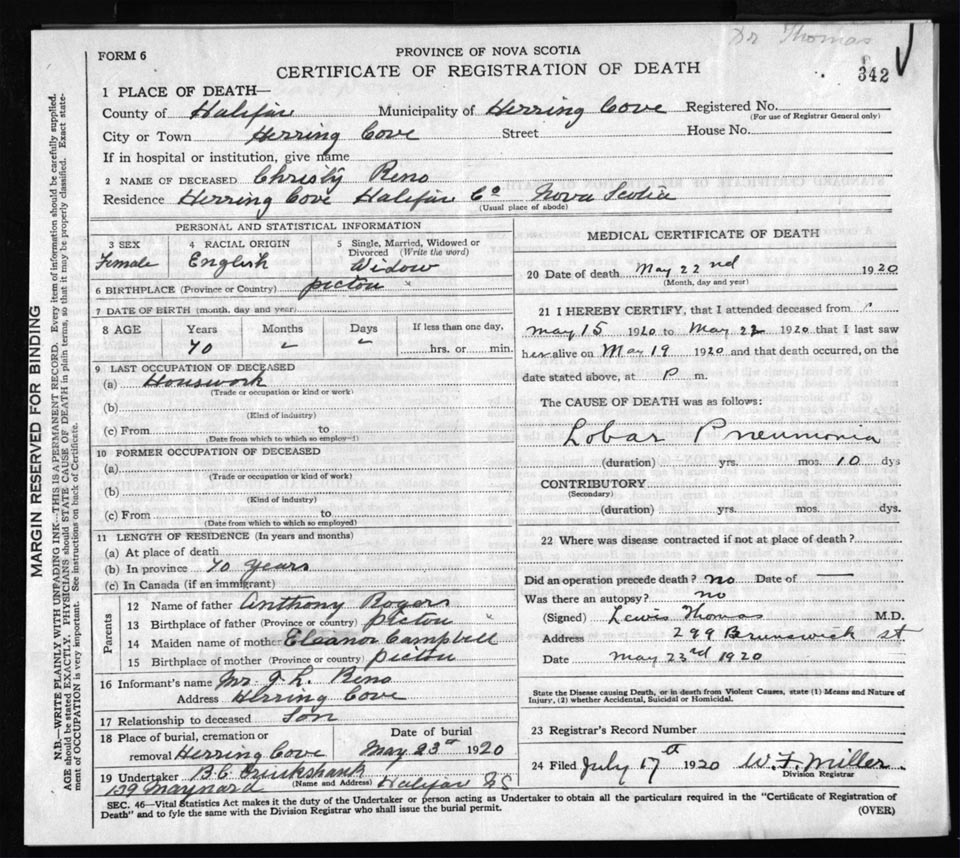 Dr Thomas
FORM 6
PROVINCE OF NOVA SCOTIA
CERTIFICATE OF REGISTRATION OF DEATH
342
1 PLACE OF DEATH—
County of Halifax Municipality of Herring Cove Registered No.
(For use of Registrar General only)
City or Town Herring Cove Street House No.
If in hospital or institution, give name
2 NAME OF DECEASED Christy Reno
Residence Herring Cove Halifax Co Nova Scotia
(Usual place of abode)
PERSONAL AND STATISTICAL INFORMATION
3 SEX 4 RACIAL ORIGIN 5 Single, Married, Widowed or Divorced (Write the word)
Female English Widow
6 BIRTHPLACE (Province or Country) picton
7 DATE OF BIRTH (month, day and year)
8 AGE Years Months Days If less than one day,
70 " " hrs. or min.
9 LAST OCCUPATION OF DECEASED
(a) Houswork
(Trade or occupation or kind or work)
(b)
(Kind of industry)
(c) From to
(Date from which to which so employed)
10 FORMER OCCUPATION OF DECEASED
(a)
(Trade or occupation or kind of work)
(b)
(Kind of industry)
(c) From to
(Date from which to which so employed)
11 LENGTH OF RESIDENCE (In years and months)
(a) At place of death
(b) In province 70 years
(c) In Canada (if an immigrant)
Parents
12 Name of father Anthony Rogers
13 Birthplace of father (Province or country) picton
14 Maiden name of mother Eleanor Campbell
15 Birthplace of mother (Province or country) picton
16 Informant's name Mr J. L. Reno
Address Herring Cove
17 Relationship to deceased Son
18 Place of burial, cremation or Date of burial
removal Herring Cove May 23rd 1920
19 Undertaker B C Cruikshank
(Name and Address)
139 Maynard Halifax NS
MEDICAL CERTIFICATE OF DEATH
20 Date of death May 22nd 1920
(Month, day and year)
21 I HEREBY CERTIFY, that I attended deceased from
May 15 1920 to May 22 1920 that I last saw
her alive on May 19 1920 and that death occurred, on the
date stated above, at P m.
The CAUSE OF DEATH was as follows:
Lobar Pneumonia
(duration) yrs. mos. 10 dys
CONTRIBUTORY
(Secondary)
(duration) yrs. mos. dys.
22 Where was disease contracted if not at place of death?
Did an operation precede death? no Date of —
Was there an autopsy? no
(Signed) Lewis Thomas M.D.
Address 299 Brunswick st
Date May 23rd 1920
State the Disease causing Death, or in death from Violent Causes, state (1) Means and Nature of
Injury, (2) whether Accidental, Suicidal or Homicidal.
23 Registrar's Record Number
24 Filed July 17th 1920 W. F. Miller
Division Registrar
SEC. 46—Vital Statistics Act makes it the duty of the Undertaker or person acting as Undertaker to obtain all the particulars required in the "Certificate of Registration of
Death" and to fyle the same with the Division Registrar who shall issue the burial permit.
(OVER)
MARGIN RESERVED FOR BINDING
N.B.—WRITE PLAINLY WITH UNFADING INK—THIS IS A PERMANENT RECORD. Every item of information should be carefully supplied.
AGE should be stated EXACTLY. PHYSICIANS should STATE CAUSE OF DEATH in plain terms, so that it may be properly classified. Exact state-
ment of OCCUPATION is very important. See instructions on back of Certificate.